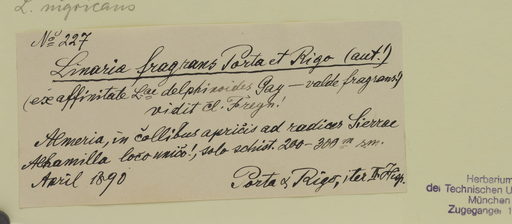 L. nigricans
No 227
Linaria fragrans Porta et Rigo (aut.!)
(ex affinitate Lae delphinoides Gay — valde fragrans!)
vidit cl. Freyn!
Almeria, in collibus apricis ad radices Sierrae
Alhamilla loco unico!, solo schist. 200-300 m sm.
April 1890
Porta & Rigo, iter II Hisp.
Herbarium
der Technischen U
München
Zugegangen 1